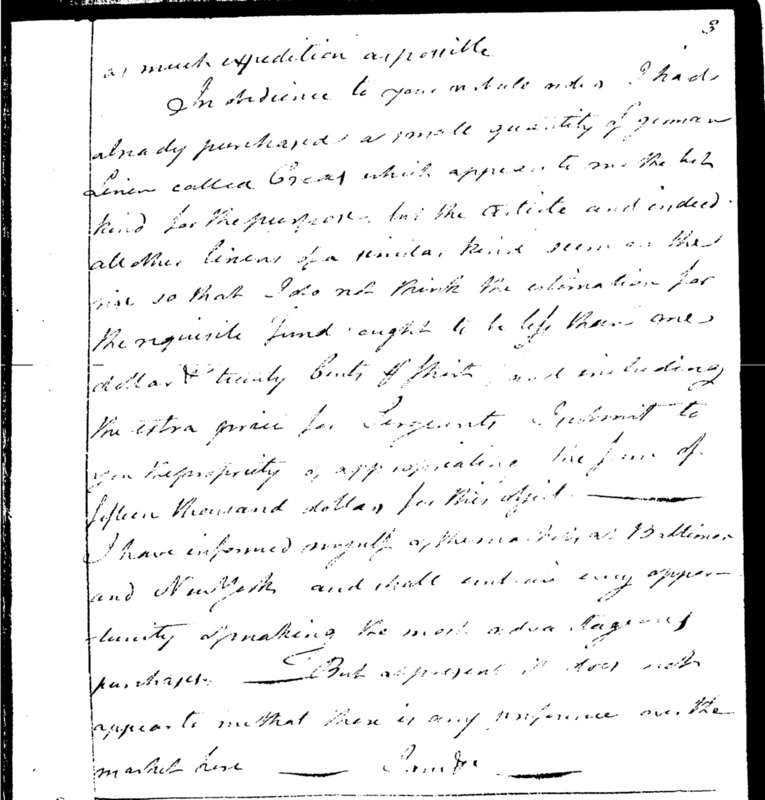 3
as much expedition as possible
In obedience to your verbale orders I had
already purchased a small quantity of german
Linen called Creas which appears to me the best
kind for the purpose, but the article and indeed
all other linens of a similar kind seem on the
rise so that I do not think the estimation for
the requisite fund ought to be less than one
dollar & twenty Cents shirt, and including
the extra price for Sergeants I submit to
you the propriety of appropriating the sum of
fifteen thousand dollars for this object.
I have informed myself of the markets at Baltimore
and New York and shall embrace every oppor-
-tunity of making the most advantageous
purchases. But at present it does not
appear to me that there is any preference over the
market here I am &c